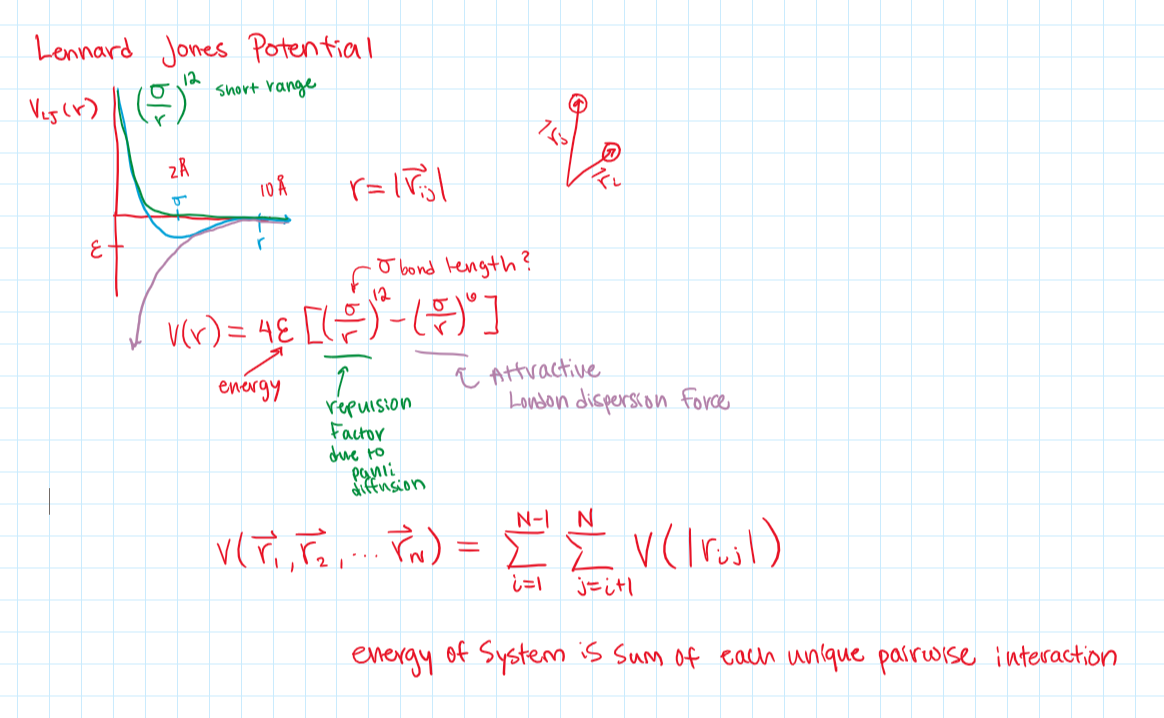 Lennard Jones Potential
V_LJ(r)
(σ/r)^12 short range
2Å
σ
10Å
r
ε
r = |r⃗_ij|
r⃗_j
r⃗_i
σ bond length?
V(r) = 4ε [(σ/r)^12 - (σ/r)^6]
energy
repulsion
Factor
due to
pauli
diffusion
Attractive
London dispersion force
V(r⃗_1, r⃗_2, ... r⃗_N) = ∑_{i=1}^{N-1} ∑_{j=i+1}^{N} V(|r_ij|)
energy of system is sum of each unique pairwise interaction